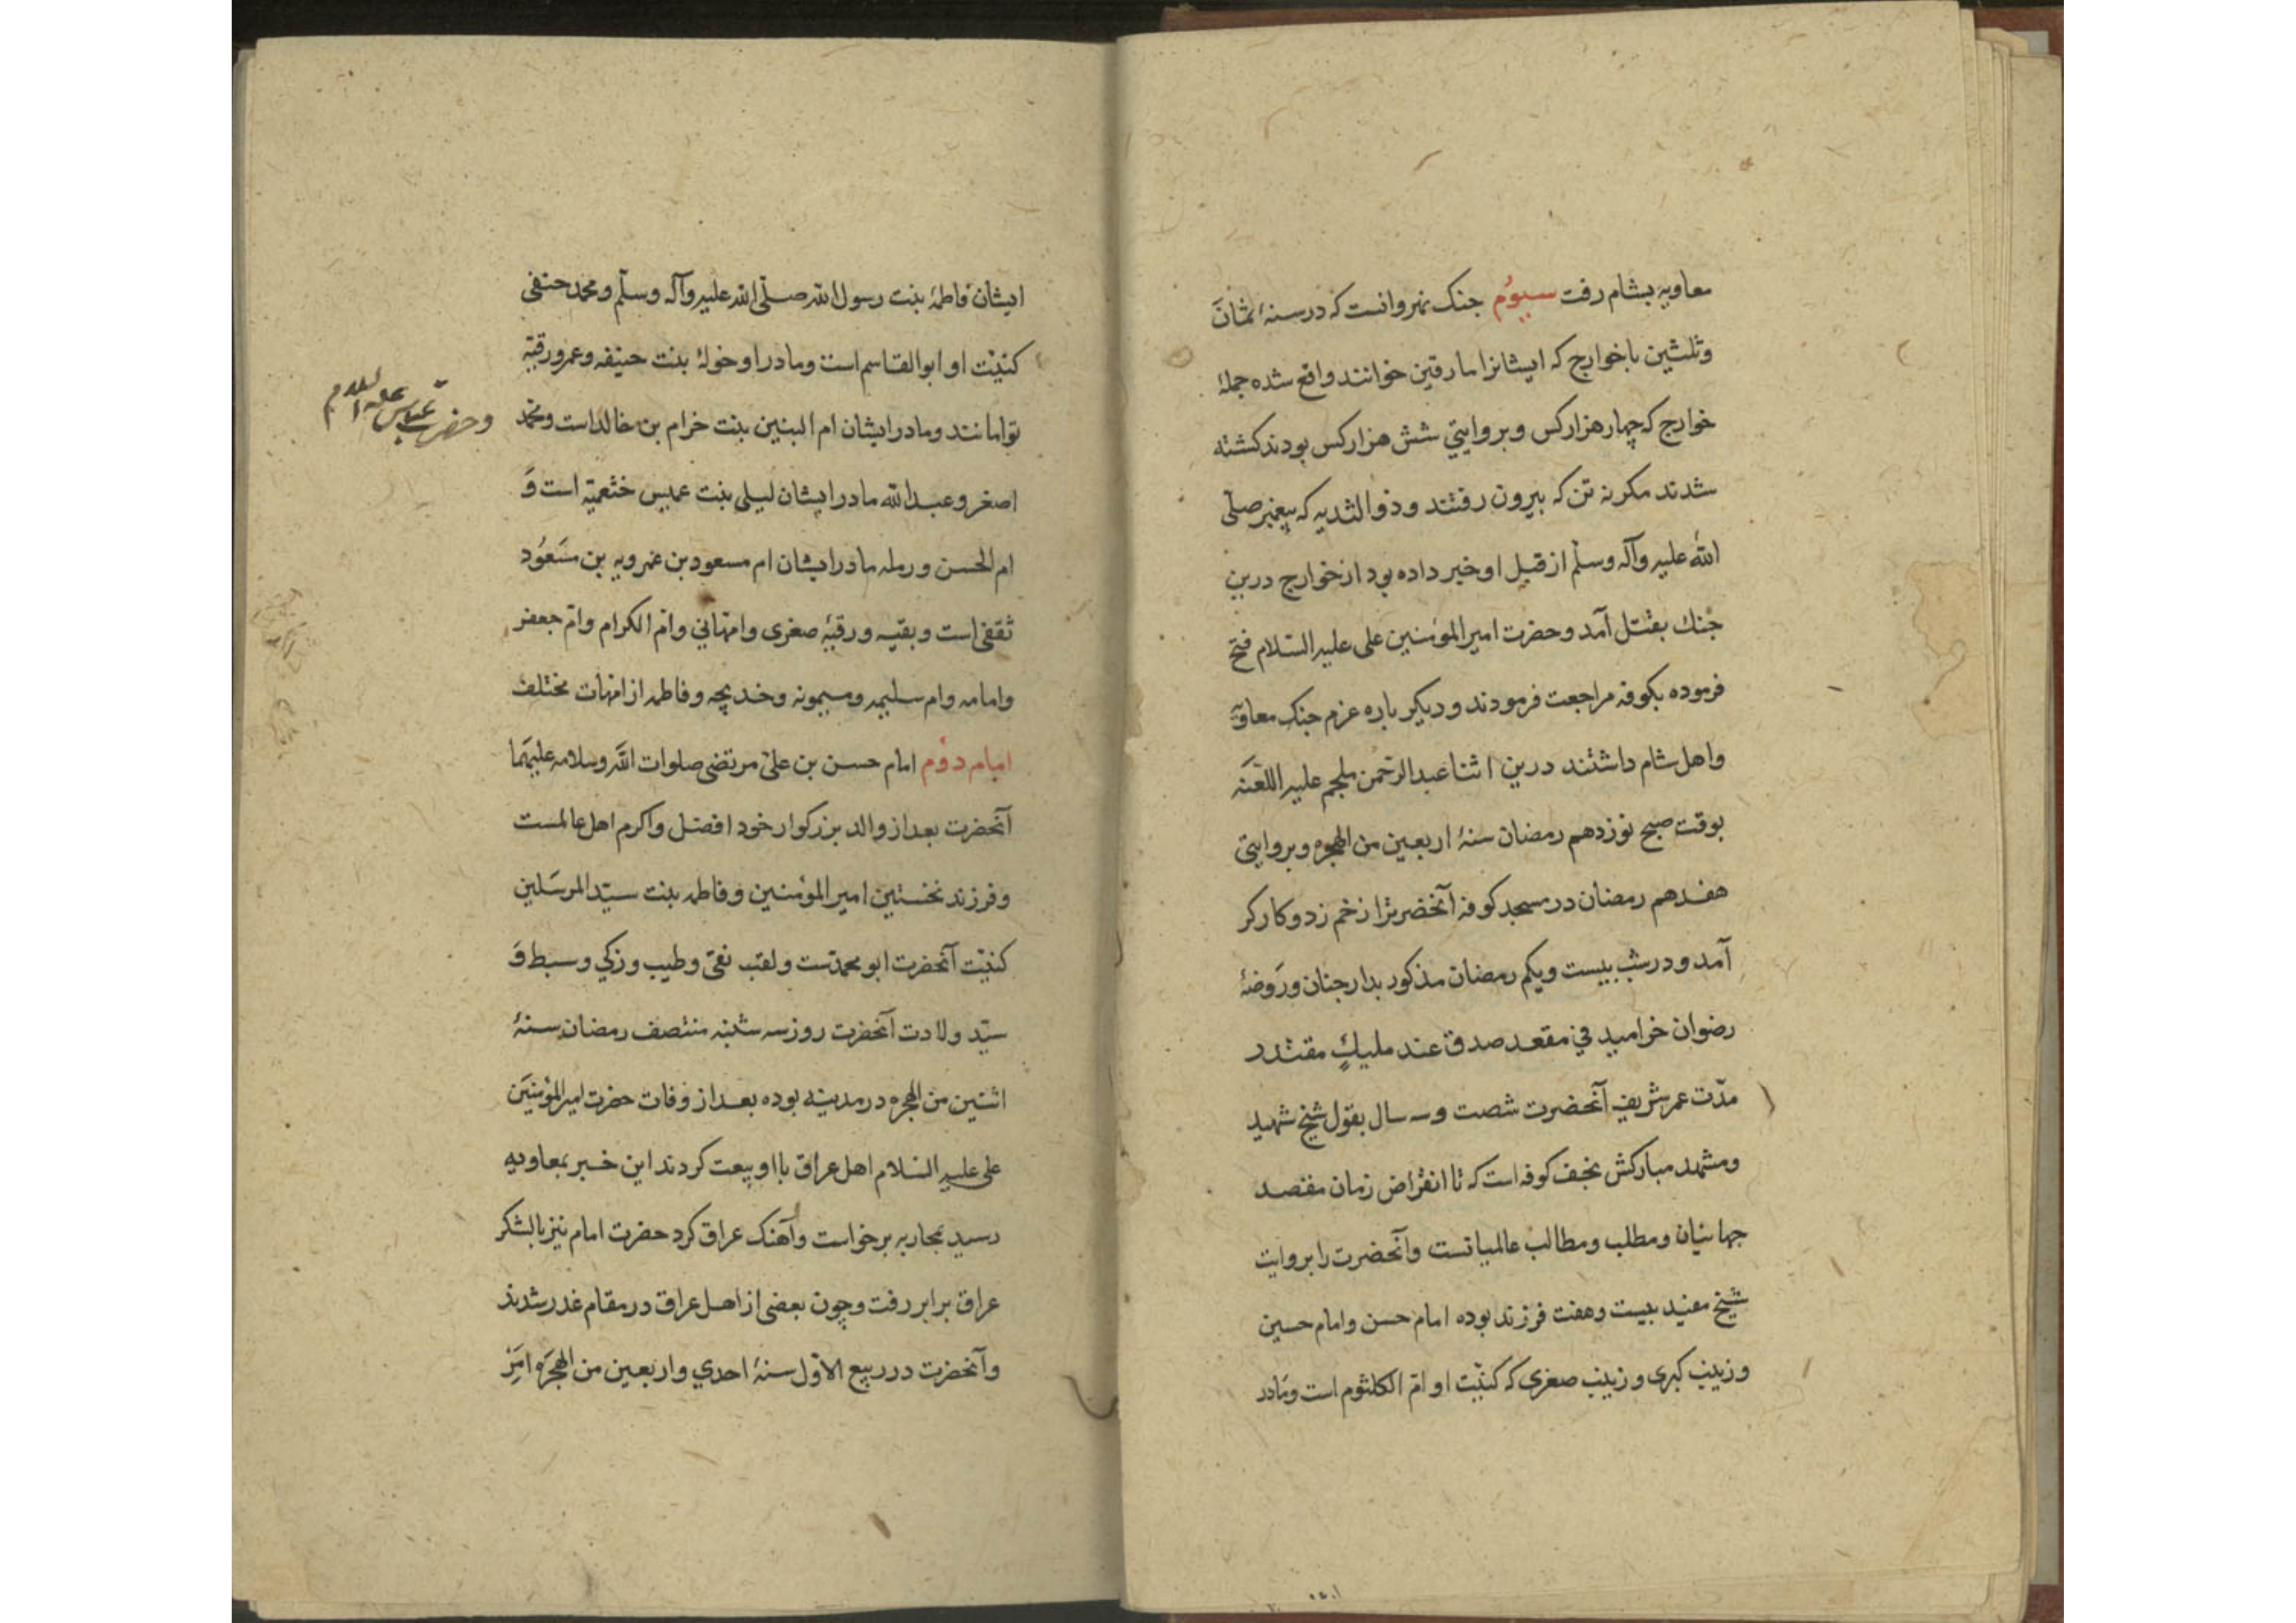 معاویه بشام رفت سیوُم جنک نهروانست که در سنهٔ ثمانَ
وثلثین با خوارج که ایشانرا مارقین خوانند واقع شده جملهٔ
خوارج که چهار هزار کس و بروایتي شش هزار کس بودند کشته
شدند مکر نه تن که بیرون رفتند و ذوالثدیه که پیغمبر صلّی
الله علیه وآله وسلّم از قبل او خبر داده بود از خوارج درین
جنك بقتل آمد و حضرت امیرالمؤمنین علی علیه السّلام فتح
فرموده بکوفه مراجعت فرمودند و دیکر باره عزم جنک معاویّه
واهل شام داشتند درین اثنا عبدالرّحمن ملجم علیه اللعَنَه
بوقت صبح نوزدهم رمضان سنهٔ اربعین من الهجره و بروایتی
هفدهم رمضان در مسجد کوفه آنحضرترا زخم زد و کارکر
آمد و در شب بیست و یکم رمضان مذکور بدار جنان و رَوضهٔ
رضوان خرامید في مقعد صدق عند ملیكٍ مقتدر
مدّت عمر شریف آنحضرت شصت و سه سال بقول شیخ شهید
و مشهد مبارکش نجف کوفه است که تا انقراض زمان مقصد
جهانیان و مطلب و مطالب عالمیانست و آنحضرت را بروایت
شیخ مفید بیست و هفت فرزند بوده امام حسن و امام حسین
و زینب کبری و زینب صغری که کنیّت او امّ الکلثوم است و مَادر
ایشان فاطمهٔ بنت رسول الله صلّی الله علیه وآله وسلّم و محمد حنفی
کنیّت او ابوالقاسم است و مادر او خولهٔ بنت حنیفه و عمر و رقیّه
توامانند و مادر ایشان ام البنین بنت خرام بن خالد است و محمّد
وحضرت عباس علیه السلام
اصغر و عبدالله مادر ایشان لیلی بنت عمیس خثعمیّه است وَ
ام الحسن و رمله مادر ایشان ام مسعود بن عمرویه بن مسَعُود
ثقفی است و بقیه و رقیهٔ صغری و امّ هانی و امّ الکرام و امّ جعفر
وامامه وام سلیمه و میمونه و خدیجه و فاطمه از امّهات مختلف
امام دوُم امام حسن بن علیّ مرتضی صلوات اللّه وسلامه علیهَما
آنحضرت بعد از والد بزرکوار خود افضل و اکرم اهل عالمست
و فرزند نخستین امیرالمؤمنین و فاطمه بنت سیّد المرسَلین
کنیّت آنحضرت ابو محمدّست و لقب نقیّ و طیب و زکي و سبط وَ
سیّد ولادت آنحضرت روز سه شنبه منتصف رمضان سنهٔ
اثنین من الهجره در مدینه بوده بعد از وفات حضرت امیرالمؤمنیَن
علی علیه السّلام اهل عراق با او بیعت کردند این خبر بمعاویه
رسید بمحاربه برخواست و آهنک عراق کرد حضرت امام نیز بالشکر
عراق برابر رفت و چون بعضی از اهل عراق در مقام غدر شدند
و آنحضرت در ربیع الاوّل سنهٔ احدي و اربعین من الهجرَه امَِر